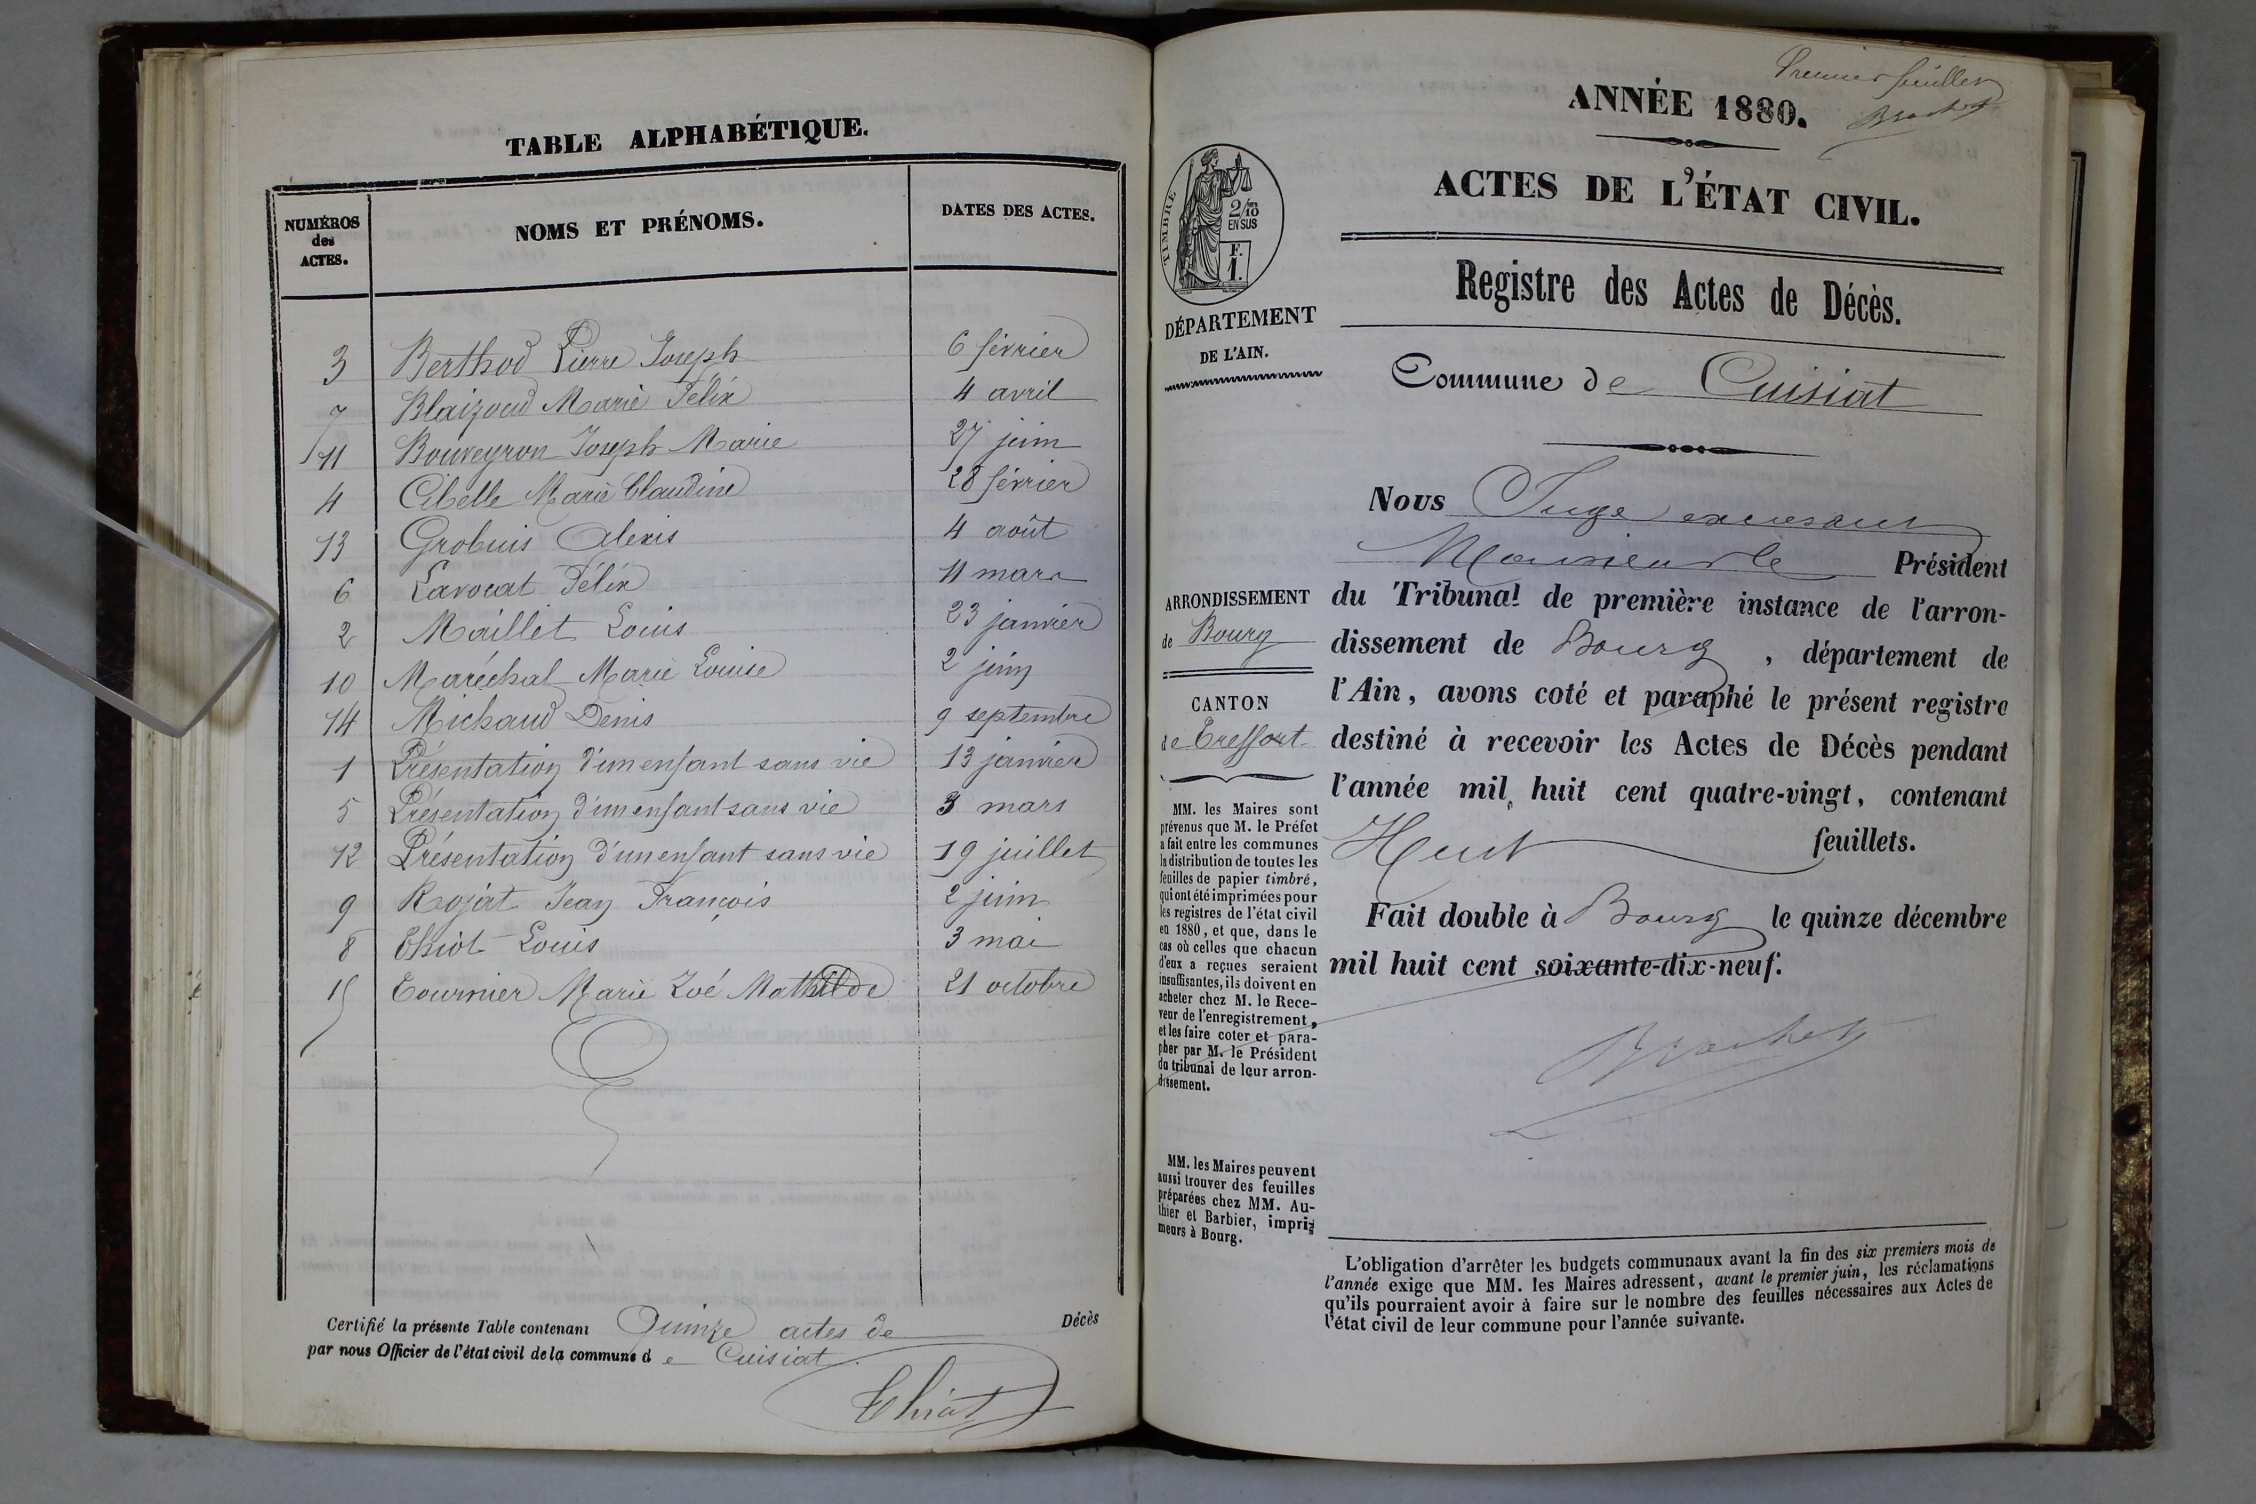 TABLE ALPHABÉTIQUE.
NUMÉROS des ACTES. NOMS ET PRÉNOMS. DATES DES ACTES.
3 Berthod Pierre Joseph 6 février
7 Blaizoud Marie Félix 4 avril
11 Bouveyron Joseph Marie 27 juin
4 Cibelle Marie Claudine 28 février
13 Grobuis Alexis 4 août
6 Lavocat Félix 11 mars
2 Maillet Louis 23 janvier
10 Maréchal Marie Louise 2 juin
14 Michaud Denis 9 septembre
1 Présentation d'un enfant sans vie 13 janvier
5 Présentation d'un enfant sans vie 3 mars
12 Présentation d'un enfant sans vie 19 juillet
9 Rojat Jean François 2 juin
8 Thiot Louis 3 mai
15 Tournier Marie Zoé Mathilde 21 octobre
Certifié la présente Table contenant Quinze actes de Décès
par nous Officier de l'état civil de la commune de Cuisiat.
Thiot
Premier feuillet
Brochet
ANNÉE 1880.
ACTES DE L'ÉTAT CIVIL.
TIMBRE
2/10
EN SUS
F.
1.
DÉPARTEMENT
DE L'AIN.
Registre des Actes de Décès.
Commune de Cuisiat
ARRONDISSEMENT
de Bourg
CANTON
de Treffort
MM. les Maires sont
prévenus que M. le Préfet
a fait entre les communes
la distribution de toutes les
feuilles de papier timbré,
qui ont été imprimées pour
les registres de l'état civil
en 1880, et que, dans le
cas où celles que chacun
d'eux a reçues seraient
insuffisantes, ils doivent en
acheter chez M. le Rece-
veur de l'enregistrement,
et les faire coter et para-
pher par M. le Président
du tribunal de leur arron-
dissement.
MM. les Maires peuvent
aussi trouver des feuilles
préparées chez MM. Au-
thier et Barbier, impri-
meurs à Bourg.
Nous Juge
Monsieur le Président
du Tribunal de première instance de l'arron-
dissement de Bourg, département de
l'Ain, avons coté et paraphé le présent registre
destiné à recevoir les Actes de Décès pendant
l'année mil huit cent quatre-vingt, contenant
Huit feuillets.
Fait double à Bourg le quinze décembre
mil huit cent soixante-dix-neuf.
Brochet
L'obligation d'arrêter les budgets communaux avant la fin des six premiers mois de
l'année exige que MM. les Maires adressent, avant le premier juin, les réclamations
qu'ils pourraient avoir à faire sur le nombre des feuilles nécessaires aux Actes de
l'état civil de leur commune pour l'année suivante.